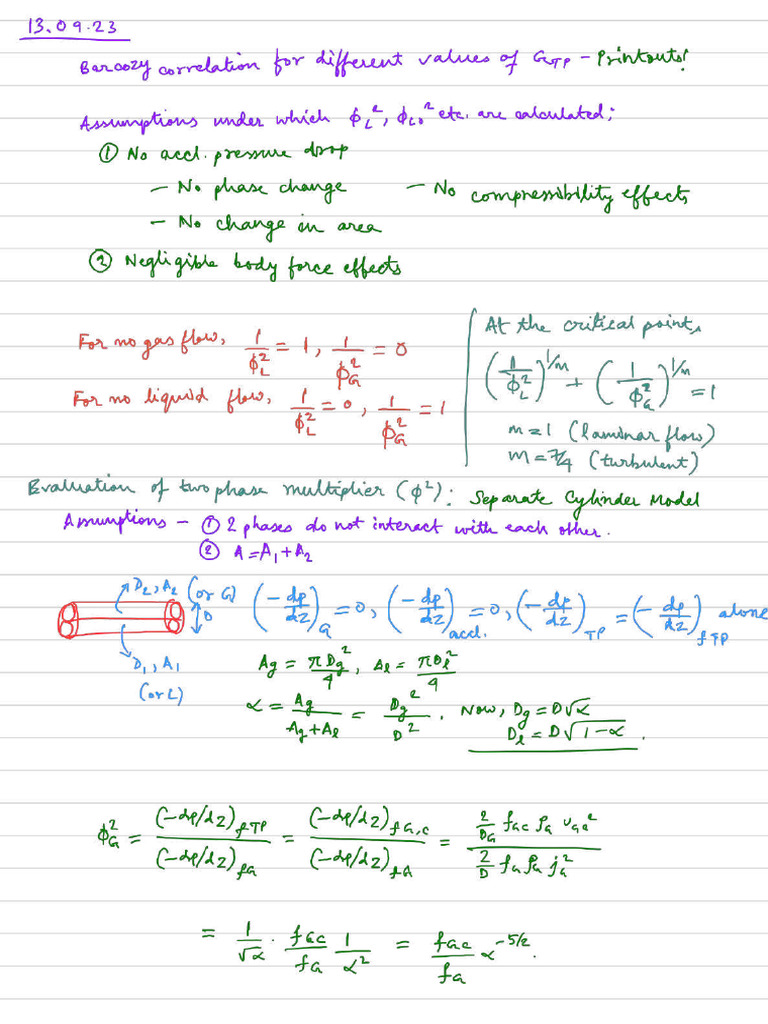 13.09.23
Barcozy correlation for different values of G_TP - Printouts!
Assumptions under which ϕ_L², ϕ_L0² etc. are calculated;
① No accl. pressure drop
— No phase change — No compressibility effects
— No change in area
② Negligible body force effects
For no gas flow, 1/ϕ_L² = 1, 1/ϕ_G² = 0
For no liquid flow, 1/ϕ_L² = 0, 1/ϕ_G² = 1
At the critical point,
(1/ϕ_L²)^1/m + (1/ϕ_G²)^1/m = 1
m = 1 (laminar flow)
m = 7/4 (turbulent)
Evaluation of two phase multiplier (ϕ²): Separate Cylinder Model
Assumptions — ① 2 phases do not interact with each other.
② A = A₁ + A₂
D₂, A₂ (or G)
D
D₁, A₁
(or L)
(-dp/dz)_G = 0, (-dp/dz)_accl. = 0, (-dp/dz)_TP = (-dp/dz)_fTP alone
Ag = πDg²/4, Al = πDl²/4
α = Ag/(Ag+Al) = Dg²/D². Now, Dg = D√α
Dl = D√(1-α).
ϕ_G² = (-dp/dz)_fTP / (-dp/dz)_fG = (-dp/dz)_fG,c / (-dp/dz)_fG = (2/D_G f_Gc ρ_G u_Gc²) / (2/D f_G ρ_G j_G²)
= 1/√α · f_Gc/f_G 1/α² = f_Gc/f_G α^-5/2.